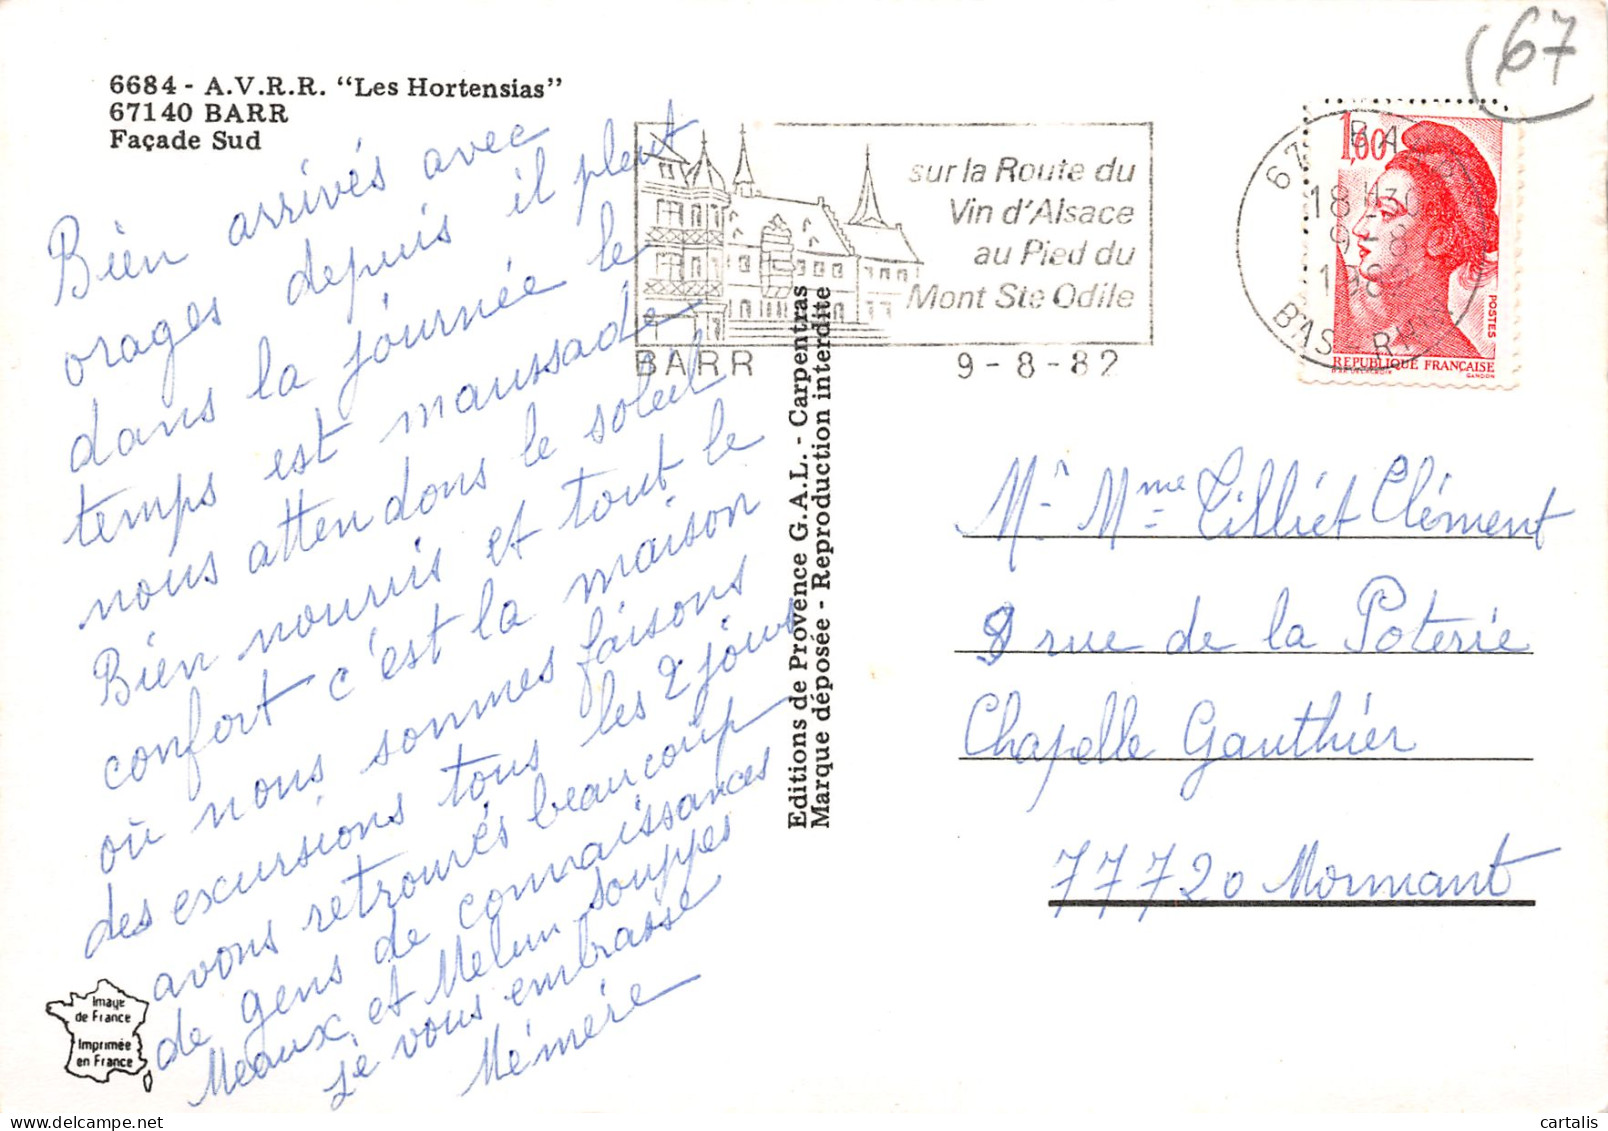 6684 - A.V.R.R. “Les Hortensias”
67140 BARR
Façade Sud
Bien arrivés avec
orages depuis il pleut
dans la journée le
temps est maussade
nous attendons le soleil
Bien nourris et tout le
confort c'est la maison
où nous sommes faisons
des excursions tous les 2 jours
avons retrouvés beaucoup
de gens de connaissances
Meaux et Melun souppes
je vous embrasse
Mémère
Image
de France
Imprimée
en France
Editions de Provence G.A.L. - Carpentras
Marque déposée - Reproduction interdite
sur la Route du
Vin d'Alsace
au Pied du
Mont Ste Odile
BARR 9-8-82
67 BARR
18 H30
9-8
1982
BAS-RHIN
1,60
POSTES
REPUBLIQUE FRANÇAISE
GANDON
67
Mr Mme Tilliet Clément
8 rue de la Poterie
Chapelle Gauthier
77720 Mormant
cartalis